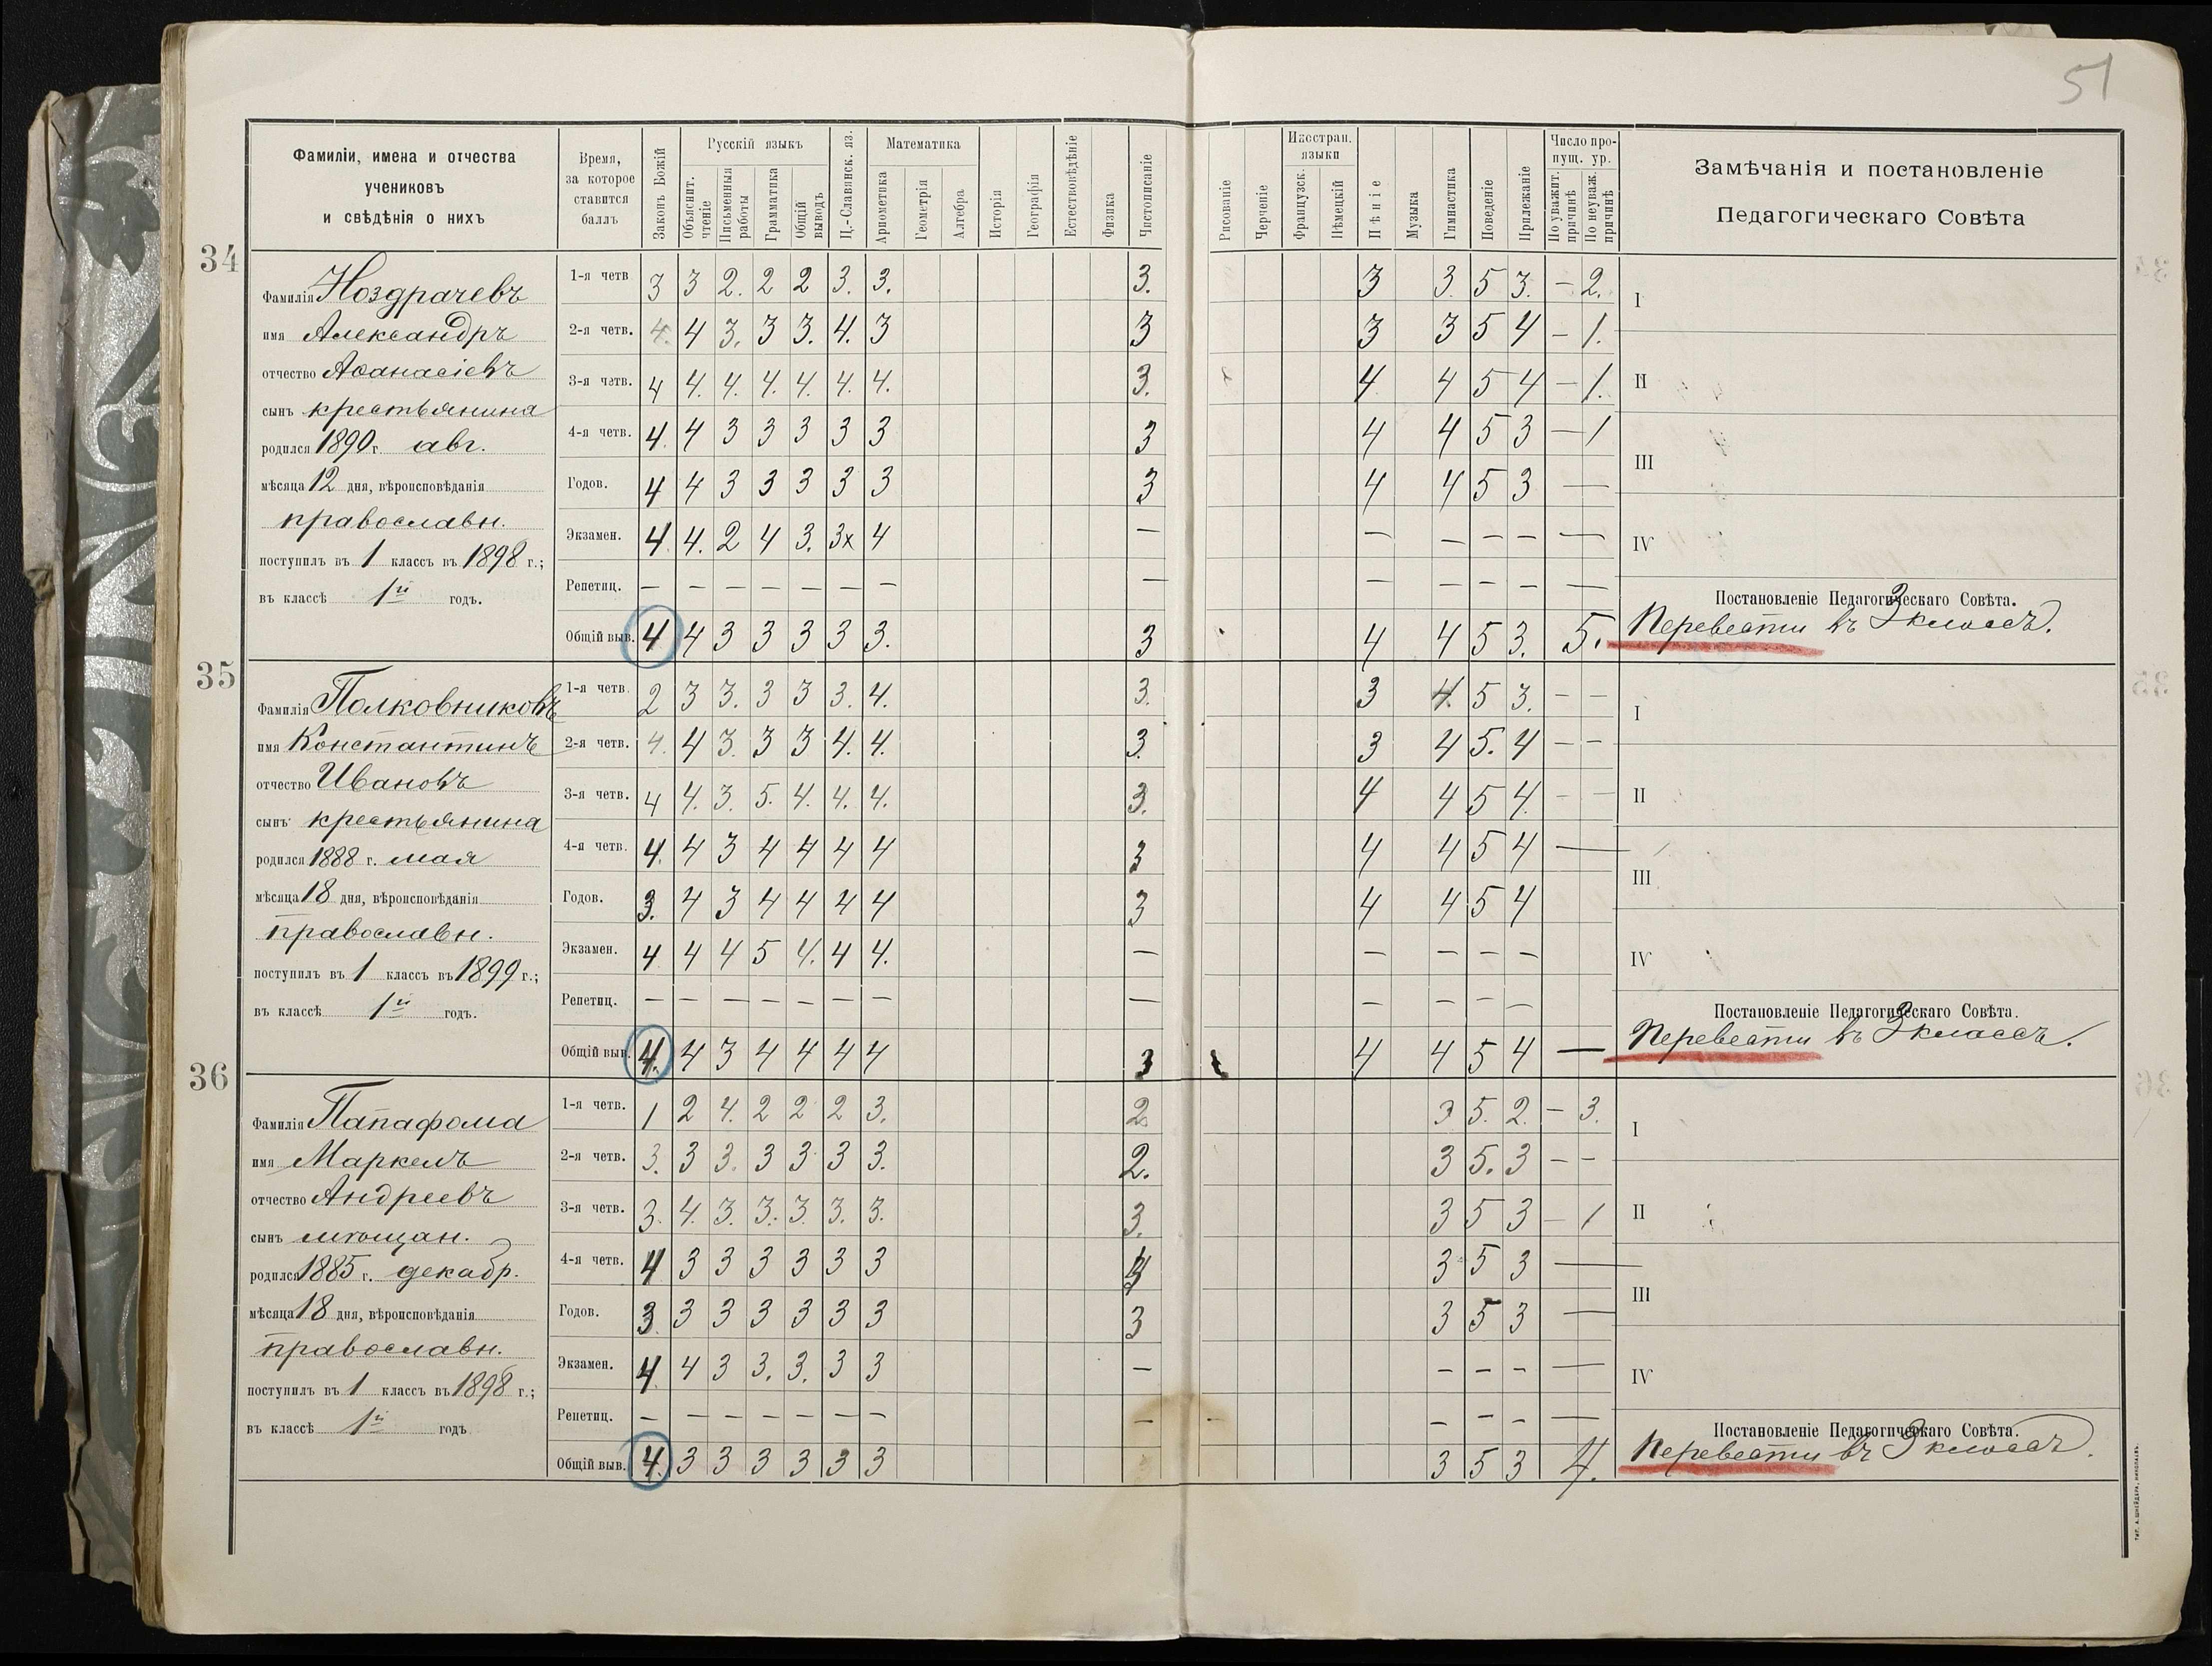 51
Фамиліи, имена и отчества
учениковъ
и свѣдѣнія о нихъ
Время,
за которое
ставится
баллъ
Законъ Божій
Русскій языкъ
Объяснит. чтеніе
Письменныя работы
Грамматика
Общій выводъ
Ц.-Славянск. яз.
Математика
Ариѳметика
Геометрія
Алгебра
Исторія
Географія
Естествовѣдѣніе
Физика
Чистописаніе
Рисованіе
Черченіе
Иностран. языки
Французск.
Нѣмецкій
Пѣніе
Музыка
Гимнастика
Поведеніе
Прилежаніе
Число пропущ. ур.
По уважит. причинѣ
По неуваж. причинѣ
Замѣчанія и постановленіе
Педагогическаго Совѣта
34
Фамилія Ноздрачевъ
имя Александръ
отчество Аѳанасіевъ
сынъ крестьянина
родился 1890 г. авг.
мѣсяца 12 дня, вѣроисповѣданія
православн.
поступилъ въ 1 классъ въ 1898 г.;
въ классѣ 1й годъ.
1-я четв 3 3 2. 2 2 3. 3. 3. 3 3. 5 3. — 2.
2-я четв. 4. 4 3. 3 3. 4. 3 3 3 3 5 4 — 1.
3-я четв. 4 4. 4. 4. 4. 4. 4. 3. 4 4 5 4 — 1.
4-я четв. 4. 4 3 3 3 3 3 3 4 4 5 3 — 1
Годов. 4 4 3 3 3 3 3 3 4 4 5 3 —
Экзамен. 4 4. 2 4 3. 3x 4 — — — — — —
Репетиц. — — — — — — — — — — — — —
Общій выв. 4 4 3 3 3 3 3. 3 4 4 5 3. 5.
I
II
III
IV
Постановленіе Педагогическаго Совѣта.
Перевести въ 2 классъ.
35
Фамилія Полковниковъ
имя Константинъ
отчество Ивановъ
сынъ крестьянина
родился 1888 г. мая
мѣсяца 18 дня, вѣроисповѣданія
православн.
поступилъ въ 1 классъ въ 1899 г.;
въ классѣ 1й годъ.
1-я четв. 2 3 3. 3 3 3. 4. 3. 3 4. 5 3. — —
2-я четв. 4. 4 3. 3 3 4. 4. 3. 3 4 5. 4 — —
3-я четв. 4 4. 3. 5. 4. 4. 4. 3. 4 4 5 4. — —
4-я четв. 4. 4 3 4 4 4 4 3 4 4 5 4 —
Годов. 3. 4 3 4 4 4 4 3 4 4 5 4
Экзамен. 4 4 4 5 4. 4 4. — — — — —
Репетиц. — — — — — — — — — — — —
Общій выв. 4. 4 3 4 4 4 4 3 4 4 5 4 —
I
II
III
IV
Постановленіе Педагогическаго Совѣта.
Перевести въ 2 классъ.
36
Фамилія Папафома
имя Маркелъ
отчество Андреевъ
сынъ мѣщан.
родился 1885 г. декабр.
мѣсяца 18 дня, вѣроисповѣданія
православн.
поступилъ въ 1 классъ въ 1898 г.;
въ классѣ 1й годъ
1-я четв. 1 2 4. 2 2 2 3. 2. 3 5. 2. — 3.
2-я четв. 3. 3 3. 3 3 3 3. 2. 3 5. 3 — —
3-я четв. 3. 4. 3. 3. 3. 3. 3. 3. 3 5 3 — 1
4-я четв. 4 3 3 3 3 3 3 3 5 3 —
Годов. 3 3 3 3 3 3 3 3 3 5 3 —
Экзамен. 4 4 3 3. 3. 3 3 — — — — —
Репетиц. — — — — — — — — — — — — —
Общій выв. 4. 3 3 3 3 3 3 3 5 3 4.
I
II
III
IV
Постановленіе Педагогическаго Совѣта.
Перевести въ 2 классъ.
ТИП. А. ШНЕЙДЕРА, НИКОЛАЕВЪ.